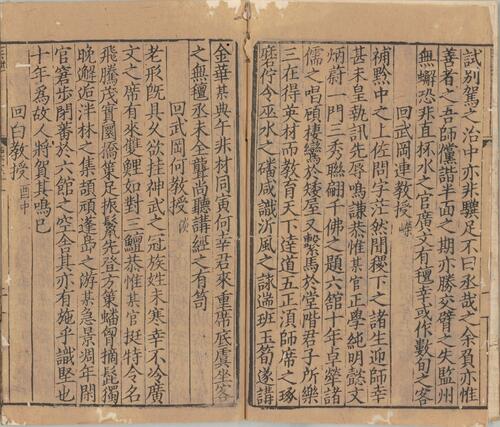 試别駕之治中亦非驥足不曰丞哉之余負亦惟
善者之吾師儻諧半面之期亦勝交臂之失監州
無蠏恐非直杯水之官廣文有氊幸或作數旬之客
回武岡連教授
補黔中之上佐問字茫然閒稷下之諸生迎師幸
甚未皇執訊先辱鳴謙恭惟某官正學純明懿文
炳蔚一門三秀聯翩千佛之題六館十年卓犖諸
儒之唱頎棲鸞於矮屋又繫馬於堂階君子所樂
三在得英材而教育天下達道五正湏師席之琢
磨佇令巫水之磻咸識沂風之詠湍班玉筍遂講
金華某典午非材同寅何幸君來重席底虞坐客
之無氊丞未全聾尚聽講經之有笥
回武岡何教授
老形旣具久欲挂神武之冠族姓未寒幸不冷廣
文之席有來雙鯉如對三鱣恭惟某官挺特令名
飛騰茂實圜橋策足振鬛先登方策蟠胷摘髭獨
晚邂逅泮林之集頡頏蓬島之游某急景凋年閑
官窘步閉番於六館之空舍其亦有施乎識堅也
十年爲故人將賀其鳴已
回白教授 酉中